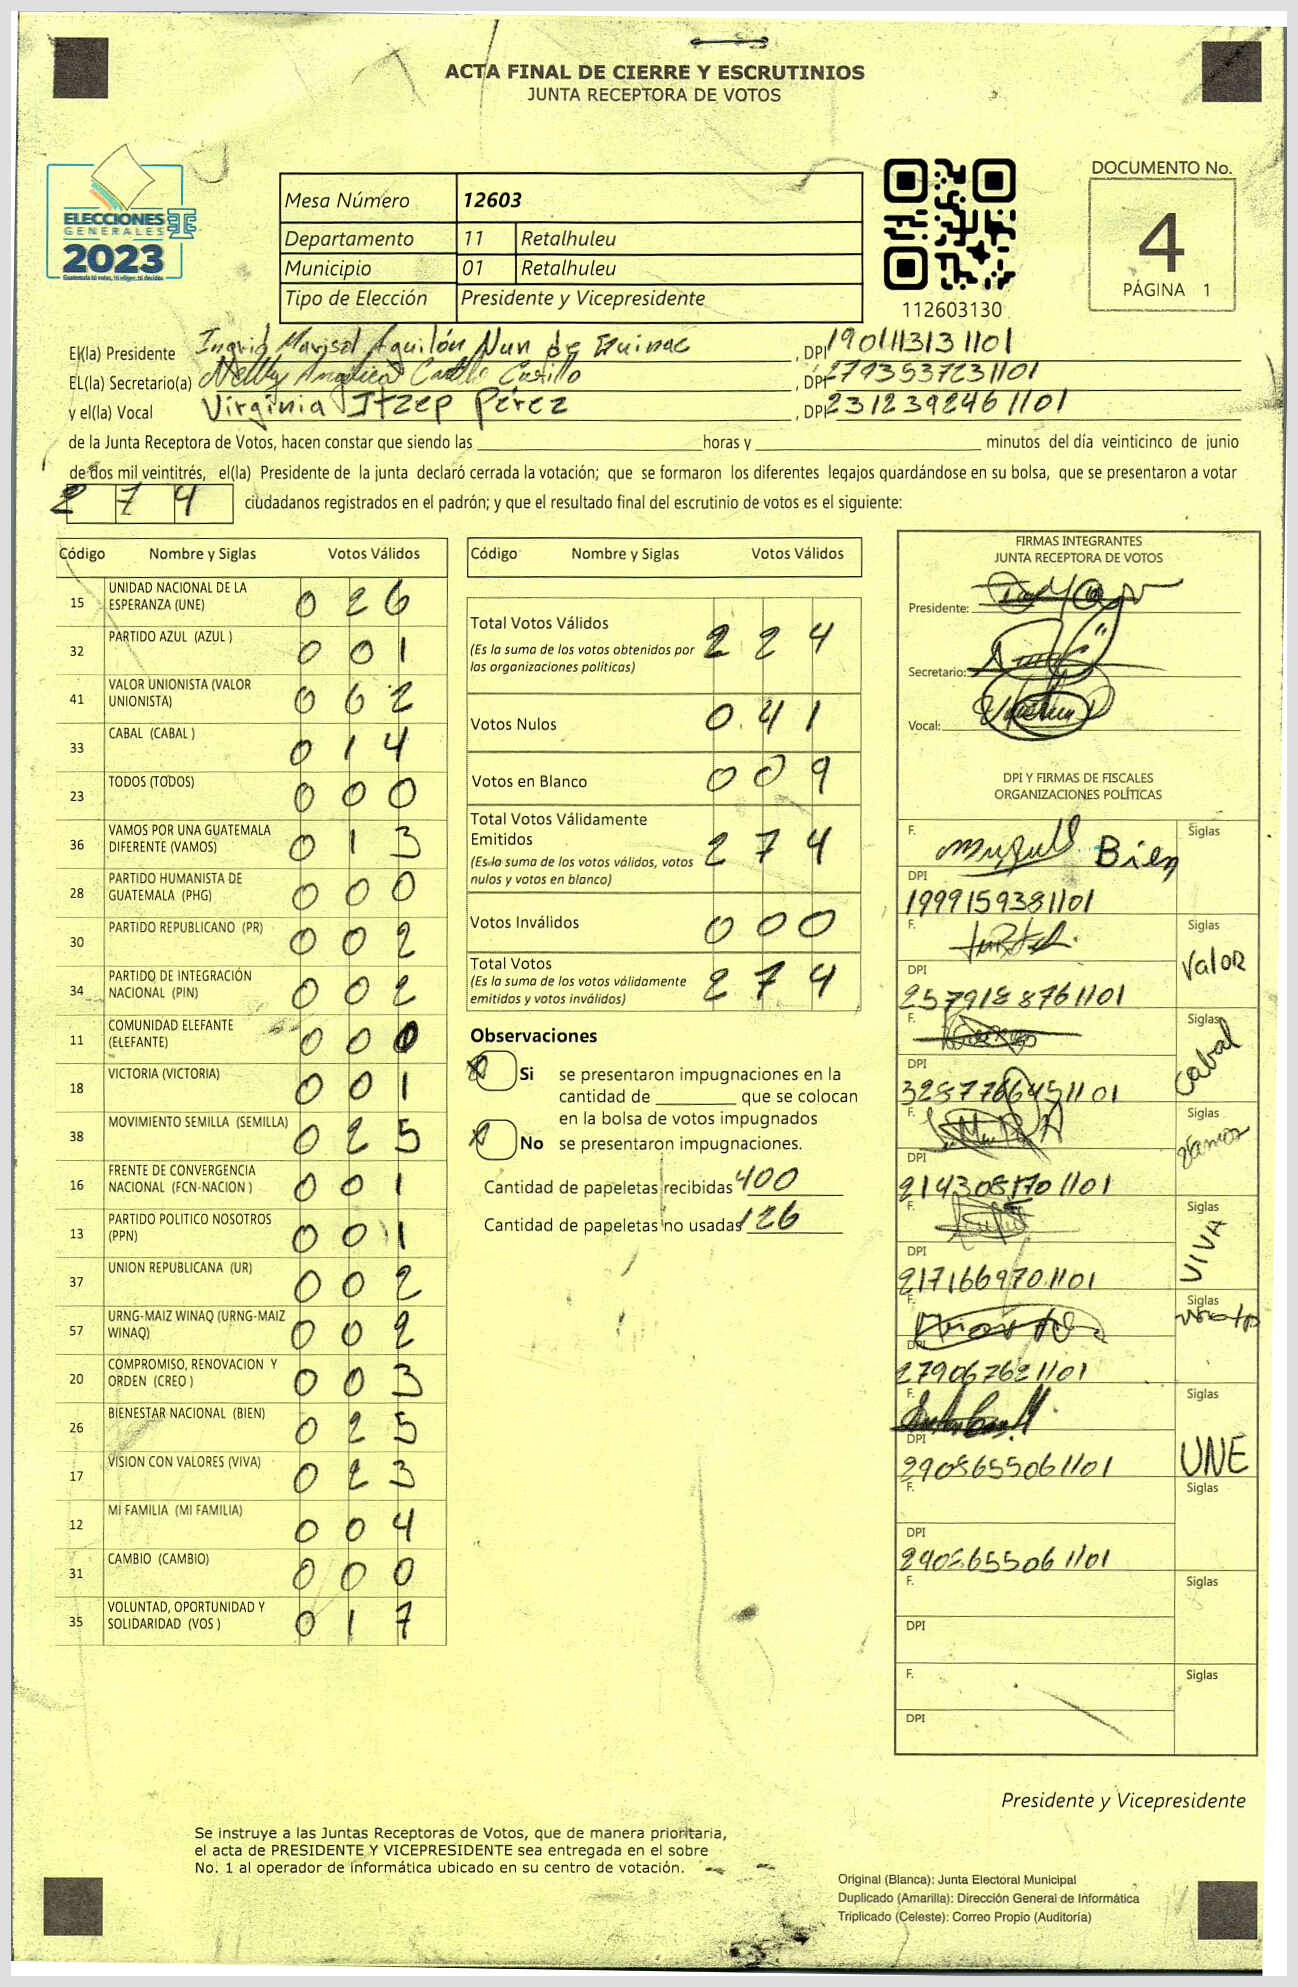 ACTA FINAL DE CIERRE Y ESCRUTINIOS
JUNTA RECEPTORA DE VOTOS
ELECCIONES
GENERALES
2023
Guatemala tú votas, tú eliges, tú decides
Mesa Número 12603
Departamento 11 Retalhuleu
Municipio 01 Retalhuleu
Tipo de Elección Presidente y Vicepresidente
112603130
DOCUMENTO No.
4
PÁGINA 1
El(la) Presidente Ingrid Marisol Aguilón Nun de , DPI 1901113131101
EL(la) Secretario(a) Nelly Angélica Castillo , DPI 2793537231101
y el(la) Vocal Virginia Itzep Pérez , DPI 2312392461101
de la Junta Receptora de Votos, hacen constar que siendo las horas y minutos del día veinticinco de junio
de dos mil veintitrés, el(la) Presidente de la junta declaró cerrada la votación; que se formaron los diferentes legajos quardándose en su bolsa, que se presentaron a votar
2 7 4 ciudadanos registrados en el padrón; y que el resultado final del escrutinio de votos es el siguiente:
Código Nombre y Siglas Votos Válidos
15 UNIDAD NACIONAL DE LA ESPERANZA (UNE) 0 2 6
32 PARTIDO AZUL (AZUL ) 0 0 1
41 VALOR UNIONISTA (VALOR UNIONISTA) 0 6 2
33 CABAL (CABAL ) 0 1 4
23 TODOS (TODOS) 0 0 0
36 VAMOS POR UNA GUATEMALA DIFERENTE (VAMOS) 0 1 3
28 PARTIDO HUMANISTA DE GUATEMALA (PHG) 0 0 0
30 PARTIDO REPUBLICANO (PR) 0 0 2
34 PARTIDO DE INTEGRACIÓN NACIONAL (PIN) 0 0 2
11 COMUNIDAD ELEFANTE (ELEFANTE) 0 0 0
18 VICTORIA (VICTORIA) 0 0 1
38 MOVIMIENTO SEMILLA (SEMILLA) 0 2 5
16 FRENTE DE CONVERGENCIA NACIONAL (FCN-NACION ) 0 0 1
13 PARTIDO POLITICO NOSOTROS (PPN) 0 0 1
37 UNION REPUBLICANA (UR) 0 0 2
57 URNG-MAIZ WINAQ (URNG-MAIZ WINAQ) 0 0 2
20 COMPROMISO, RENOVACION Y ORDEN (CREO ) 0 0 3
26 BIENESTAR NACIONAL (BIEN) 0 2 5
17 VISION CON VALORES (VIVA) 0 2 3
12 MI FAMILIA (MI FAMILIA) 0 0 4
31 CAMBIO (CAMBIO) 0 0 0
35 VOLUNTAD, OPORTUNIDAD Y SOLIDARIDAD (VOS ) 0 1 7
Código Nombre y Siglas Votos Válidos
Total Votos Válidos 2 2 4
(Es la suma de los votos obtenidos por
las organizaciones políticas)
Votos Nulos 0 4 1
Votos en Blanco 0 0 9
Total Votos Válidamente
Emitidos 2 7 4
(Es la suma de los votos válidos, votos
nulos y votos en blanco)
Votos Inválidos 0 0 0
Total Votos 2 7 4
(Es la suma de los votos válidamente
emitidos y votos inválidos)
Observaciones
Si se presentaron impugnaciones en la
cantidad de que se colocan
en la bolsa de votos impugnados
No se presentaron impugnaciones.
Cantidad de papeletas recibidas 400
Cantidad de papeletas no usadas 126
FIRMAS INTEGRANTES
JUNTA RECEPTORA DE VOTOS
Presidente:
Secretario:
Vocal:
DPI Y FIRMAS DE FISCALES
ORGANIZACIONES POLÍTICAS
F. Siglas
Bien
DPI
1999159381101
F. Siglas
Valor
DPI
2579188761101
F. Siglas
Cabal
DPI
3287766451101
F. Siglas
Vamos
DPI
2143081701101
F. Siglas
VIVA
DPI
2171669701101
F. Siglas
DPI
279067621101
F. Siglas
UNE
DPI
2908655061101
F. Siglas
DPI
2908655061101
F. Siglas
DPI
F. Siglas
DPI
Presidente y Vicepresidente
Se instruye a las Juntas Receptoras de Votos, que de manera prioritaria,
el acta de PRESIDENTE Y VICEPRESIDENTE sea entregada en el sobre
No. 1 al operador de informática ubicado en su centro de votación.
Original (Blanca): Junta Electoral Municipal
Duplicado (Amarilla): Dirección General de Informática
Triplicado (Celeste): Correo Propio (Auditoría)